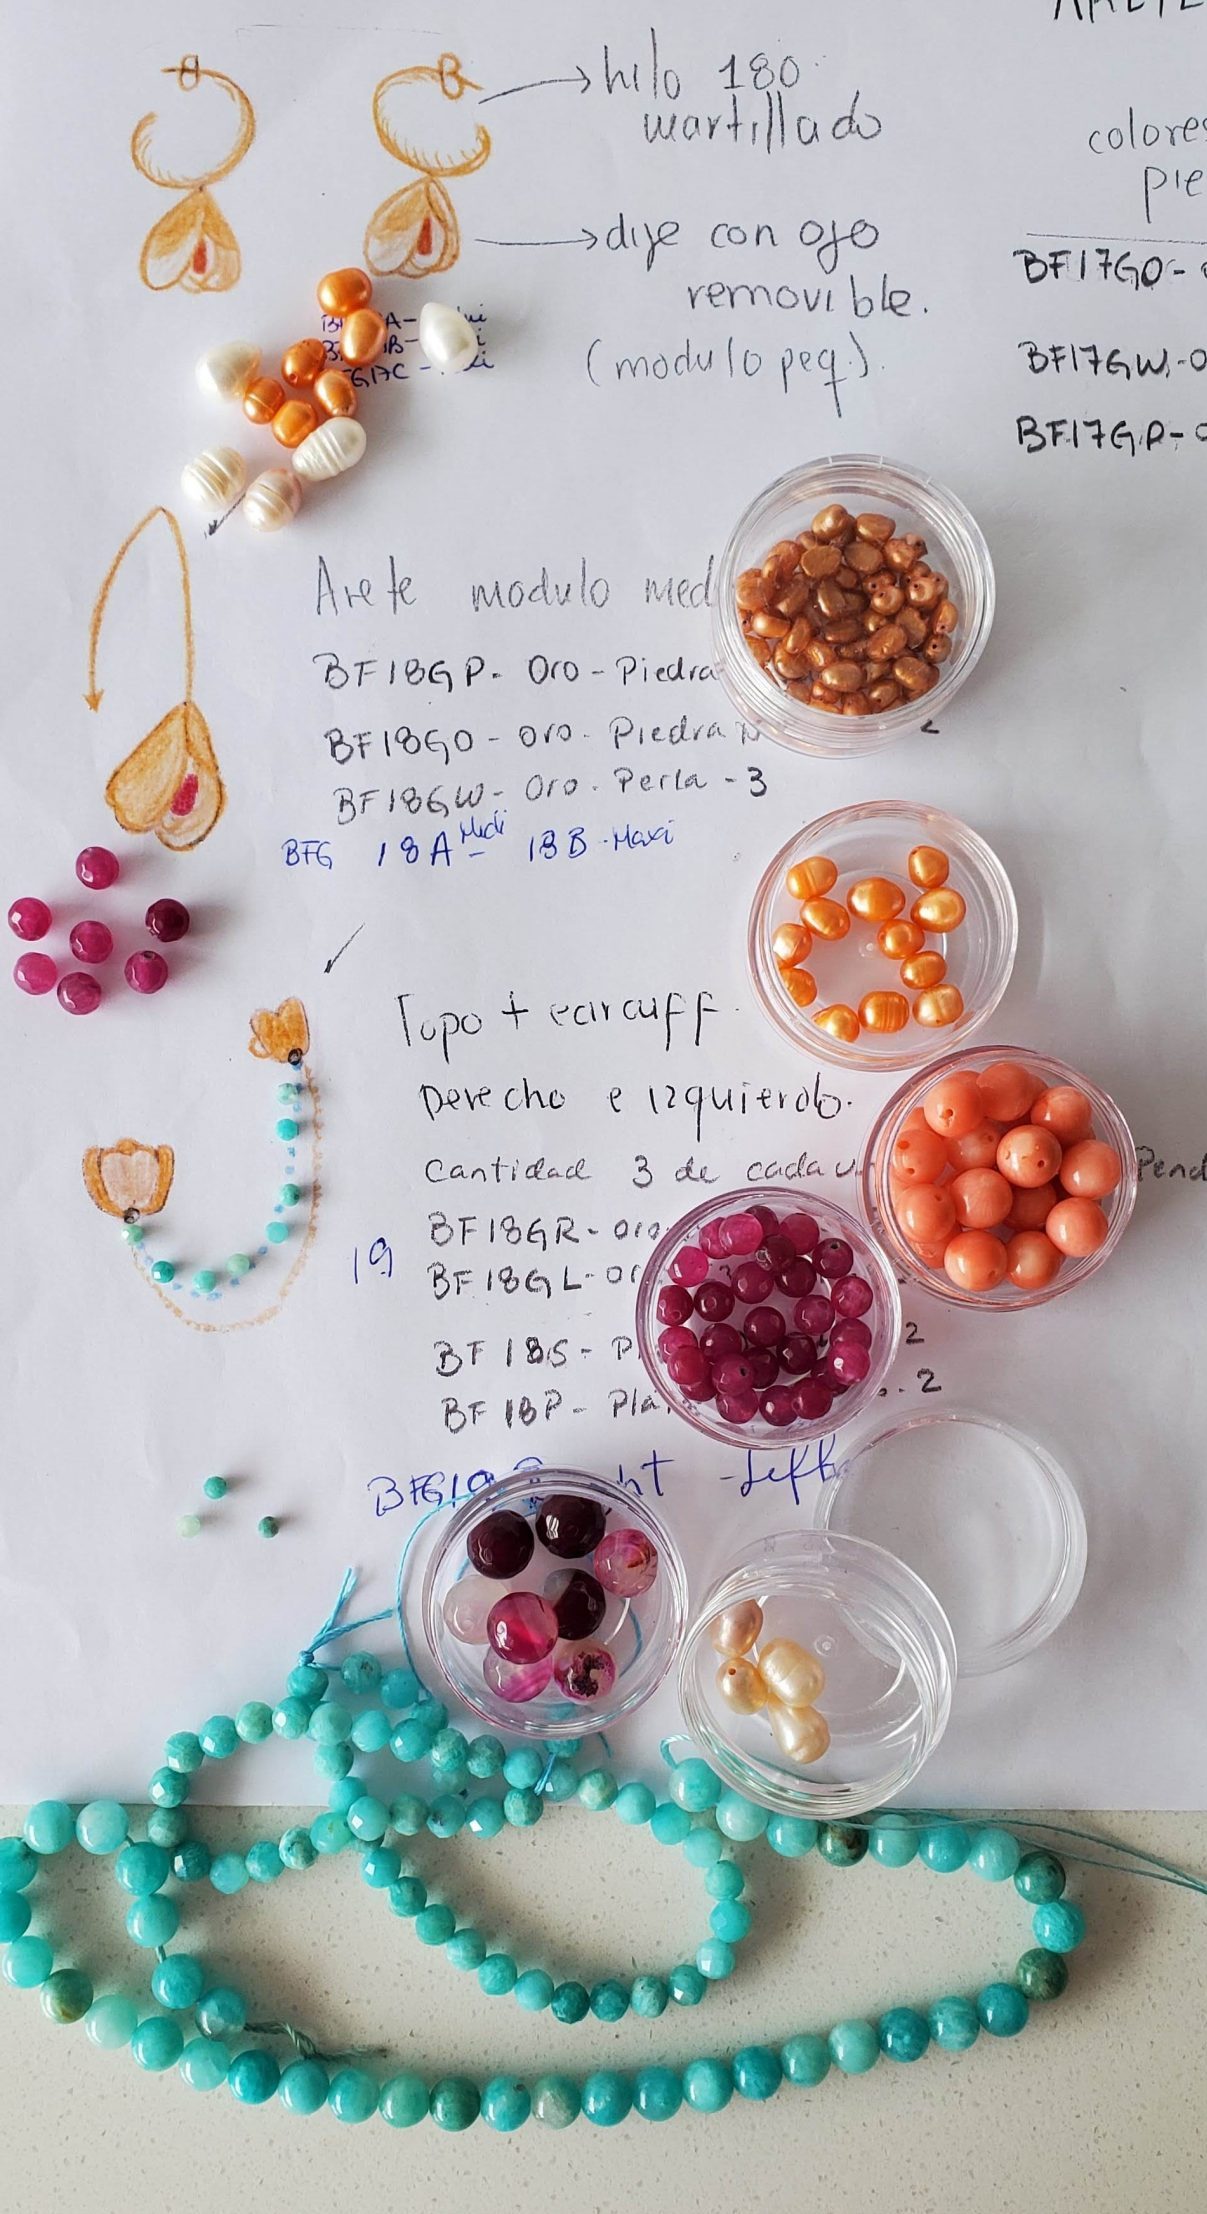 hilo 180
martillado
colores
BF17GO-
dije con ojo
removible.
(modulo peq.).
BF17GW-O
BF17GP-
Arete modulo med
BF18GP- Oro - Piedra
BF18GO - Oro - Piedra
2
BF18GW - Oro - Perla - 3
BFG 18A Midi - 18B - Maxi
Topo + earcuff.
Derecho e izquierdo.
Cantidad 3 de cada
19
BF18GR - Oro
BF18GL - Or
BF18S - P
2
BF18P - Pla
2
BFG19 ht - Left